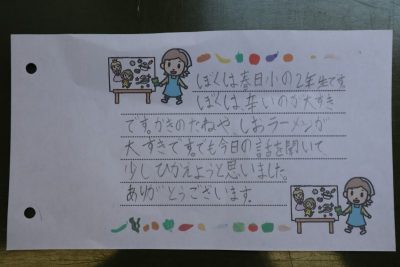 ぼくは春日小の2年生です。
ぼくは、辛いのが大すき
です。かきのたねや、しおラーメンが
大すきです。でも今日の話を聞いて
少しひかえようと思いました。
ありがとうございます。